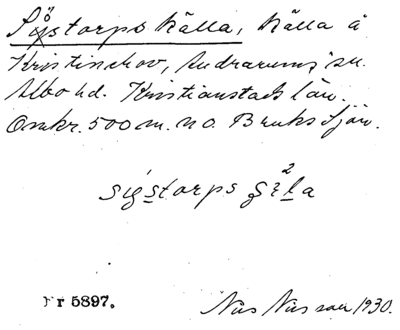 Sigstorps källa, källa å
Kristinehov, Andrarums sn.
Albo hd. Kristianstads län.
Omkr. 500 m. n.o. Bruks Sjön.
sigstorps
Nr 5897.
Nils Nilsson 1930.